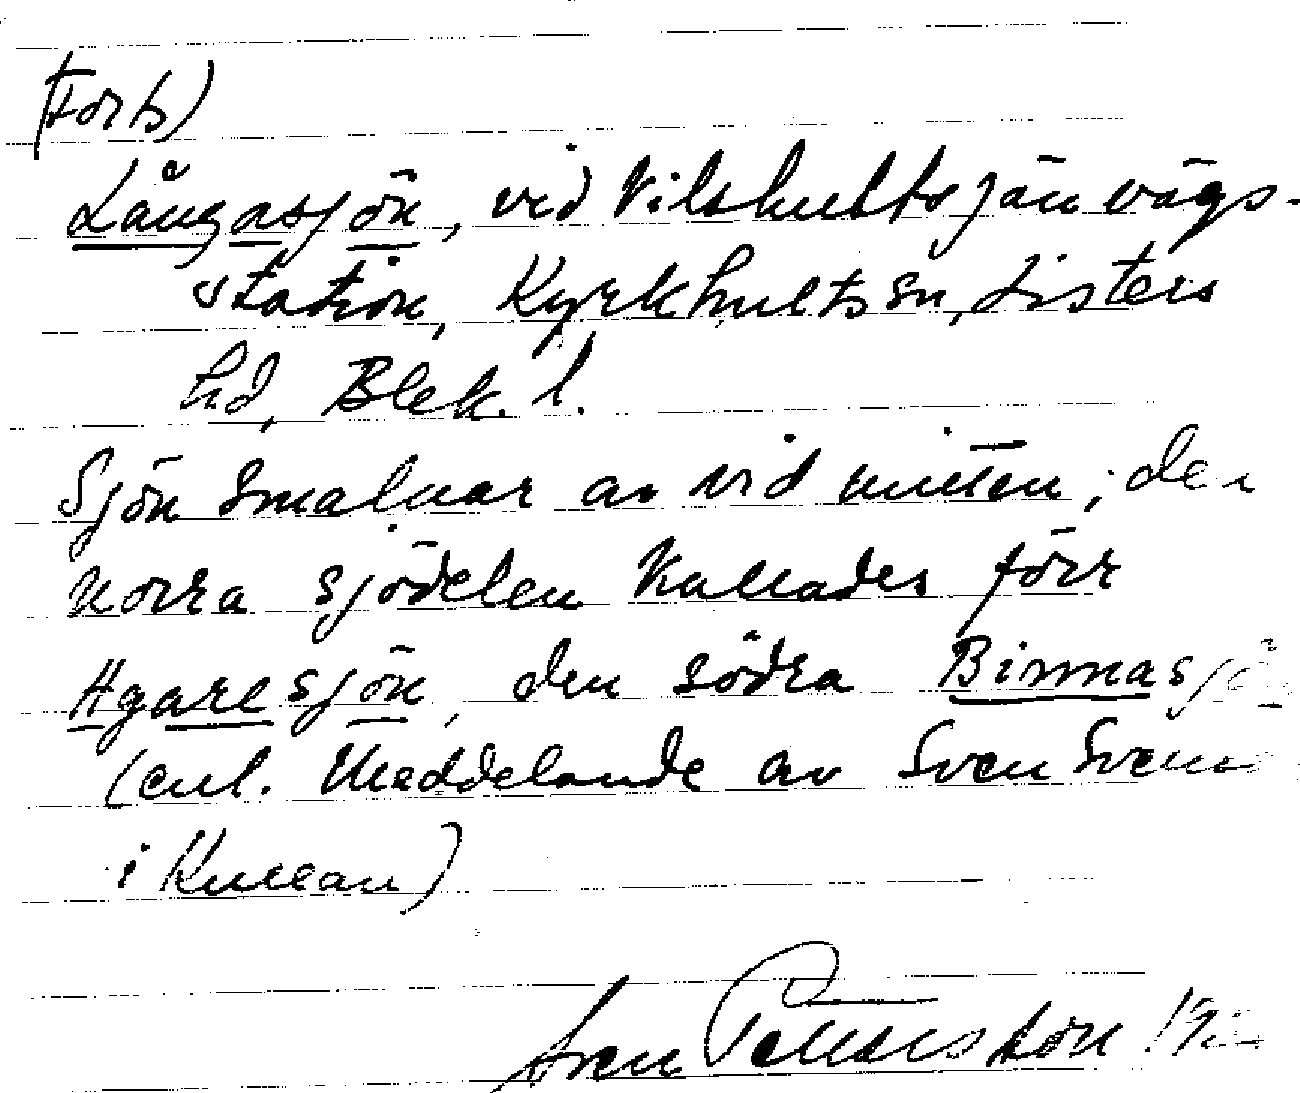 (Forts)
Långasjön, vid Vilshults järnvägs-
station, Kyrkhults sn, Listers
hd, Blek. l.
Sjön smalnar av vid mitten; den
norra sjödelen kallades förr
Agaresjön, den södra Binnasjön
(enl. meddelande av Sven Svens
i Kullan)
Sven Pettersson